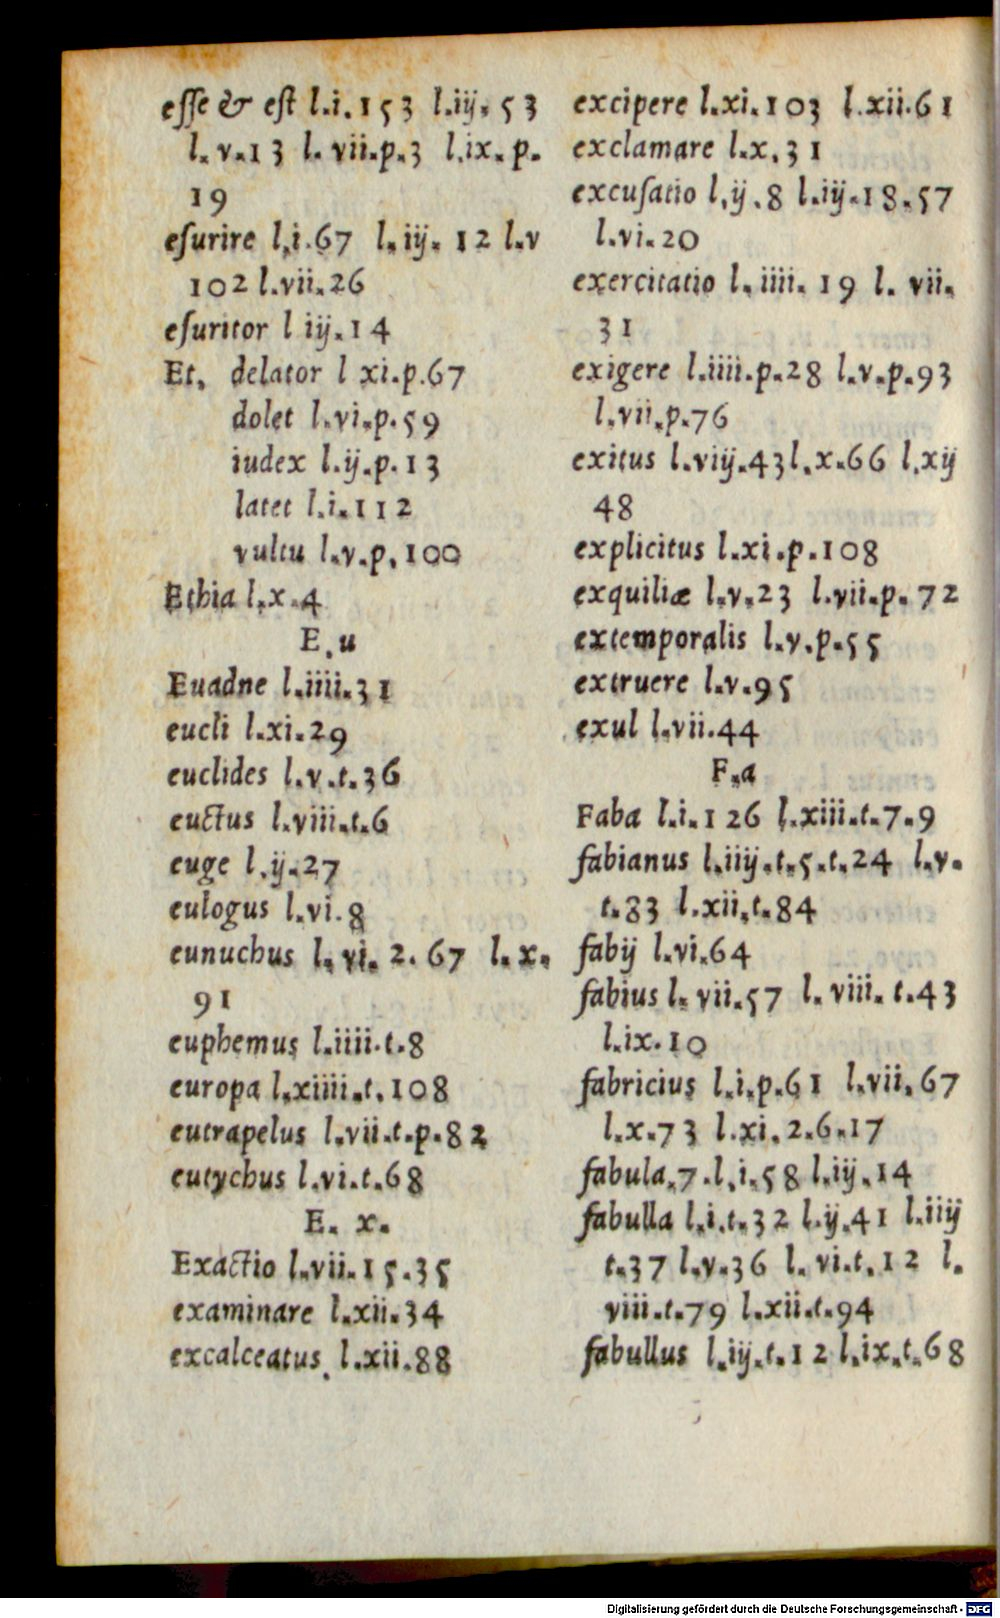 esse & est l.i.153 l.iij.53
l.v.13 l.vii.p.3 l.ix.p.
19
esurire l.i.67 l.iij.12 l.v
102 l.vii.26
esuritor l iij.14
Et, delator l xi.p.67
dolet l.vi.p.59
iudex l.ij.p.13
latet l.i.112
vultu l.v.p.100
Ethia l.x.4
E.u
Euadne l.iiii.31
eucli l.xi.29
euclides l.v.t.36
euctus l.viii.t.6
euge l.ij.27
eulogus l.vi.8
eunuchus l.vi.2.67 l.x.
91
euphemus l.iiii.t.8
europa l.xiiii.t.108
eutrapelus l.vii.t.p.82
eutychus l.vi.t.68
E. x.
Exactio l.vii.15.35
examinare l.xii.34
excalceatus l.xii.88
excipere l.xi.103 l.xii.61
exclamare l.x.31
excusatio l.ij.8 l.iij.18.57
l.vi.20
exercitatio l.iiii.19 l.vii.
31
exigere l.iiii.p.28 l.v.p.93
l.vii.p.76
exitus l.viij.43l.x.66 l.xij
48
explicitus l.xi.p.108
exquiliæ l.v.23 l.vii.p.72
extemporalis l.v.p.55
extruere l.v.95
exul l.vii.44
F.a
Faba l.i.126 l.xiii.t.7.9
fabianus l.iiij.t.5.t.24 l.v.
t.83 l.xii.t.84
fabij l.vi.64
fabius l.vii.57 l.viii.t.43
l.ix.10
fabricius l.i.p.61 l.vii.67
l.x.73 l.xi.2.6.17
fabula.7.l.i.58 l.iij.14
fabulla l.i.t.32 l.ij.41 l.iiij
t.37 l.v.36 l.vi.t.12 l.
viii.t.79 l.xii.t.94
fabullus l.iij.t.12 l.ix.t.68
Digitalisierung gefördert durch die Deutsche Forschungsgemeinschaft - DFG